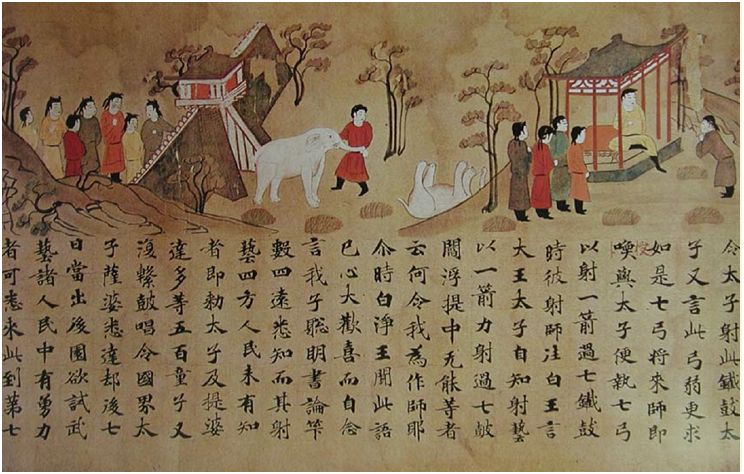 令太子射此鐵鼓太
子又言此弓弱更求
如是七弓將来師即
喚與太子便執七弓
以射一箭過七鐵鼓
時彼射師往白王言
大王太子自知射藝
以一箭力射過七皷
閻浮提中无能等者
云何令我為作師耶
尒時白淨王聞此語
已心大歡喜而自念
言我子聡明書論筭
數四遠悉知而其射
藝四方人民未有知
者即勅太子及提婆
達多等五百童子又
復擊鼓唱令國界太
子薩婆悉達却後七
日當出後園欲試武
藝諸人民中有勇力
者可悉来此到第七